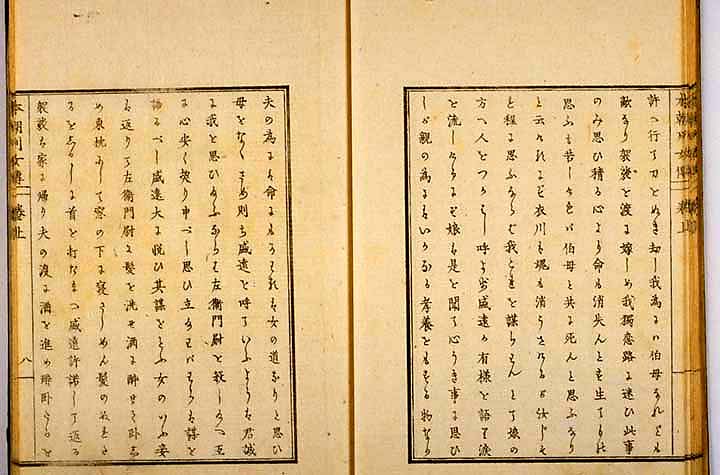 許へ行て刀とぬき却し我為にハ伯母なれども
敵なり袈裟を渡に嫁しめ我獨恋路に迷ひ此事
のみ思ひ積る心より命も消失んとす生て物
思ふも苦しき也伯母と共に死んと思ふなり
と云けれは衣川も魂も消うせ 汝
と程に思ふならば我 を謀らんとて娘の
方へ人をつかはし呼よせ盛遠の有様を語り涙
を流しければ娘も是を聞て心うき事に思ひ
しが親の為にはいかなる孝養をもする物なり
夫の為には命も 女の道なりと思ひ
母をなぐさめ則ち盛遠を呼ていふよう君誠
に我を思ひ給ふならば左衛門尉を殺し給へ互
に心安く契り申べし思ひ立 謀を
語るべし盛遠大に悦ひ其謀をとふ女のいふ妾
も返りて左衛門尉に髪を洗せ酒に酔せて臥し
め東枕にして窓の下に寝さしめん髪のぬれた
るをしるしに首を打たまへ盛遠許諾して返る
袈裟も家に帰り夫の渡に酒を進め酔臥 と
本朝列女傳 巻上
八